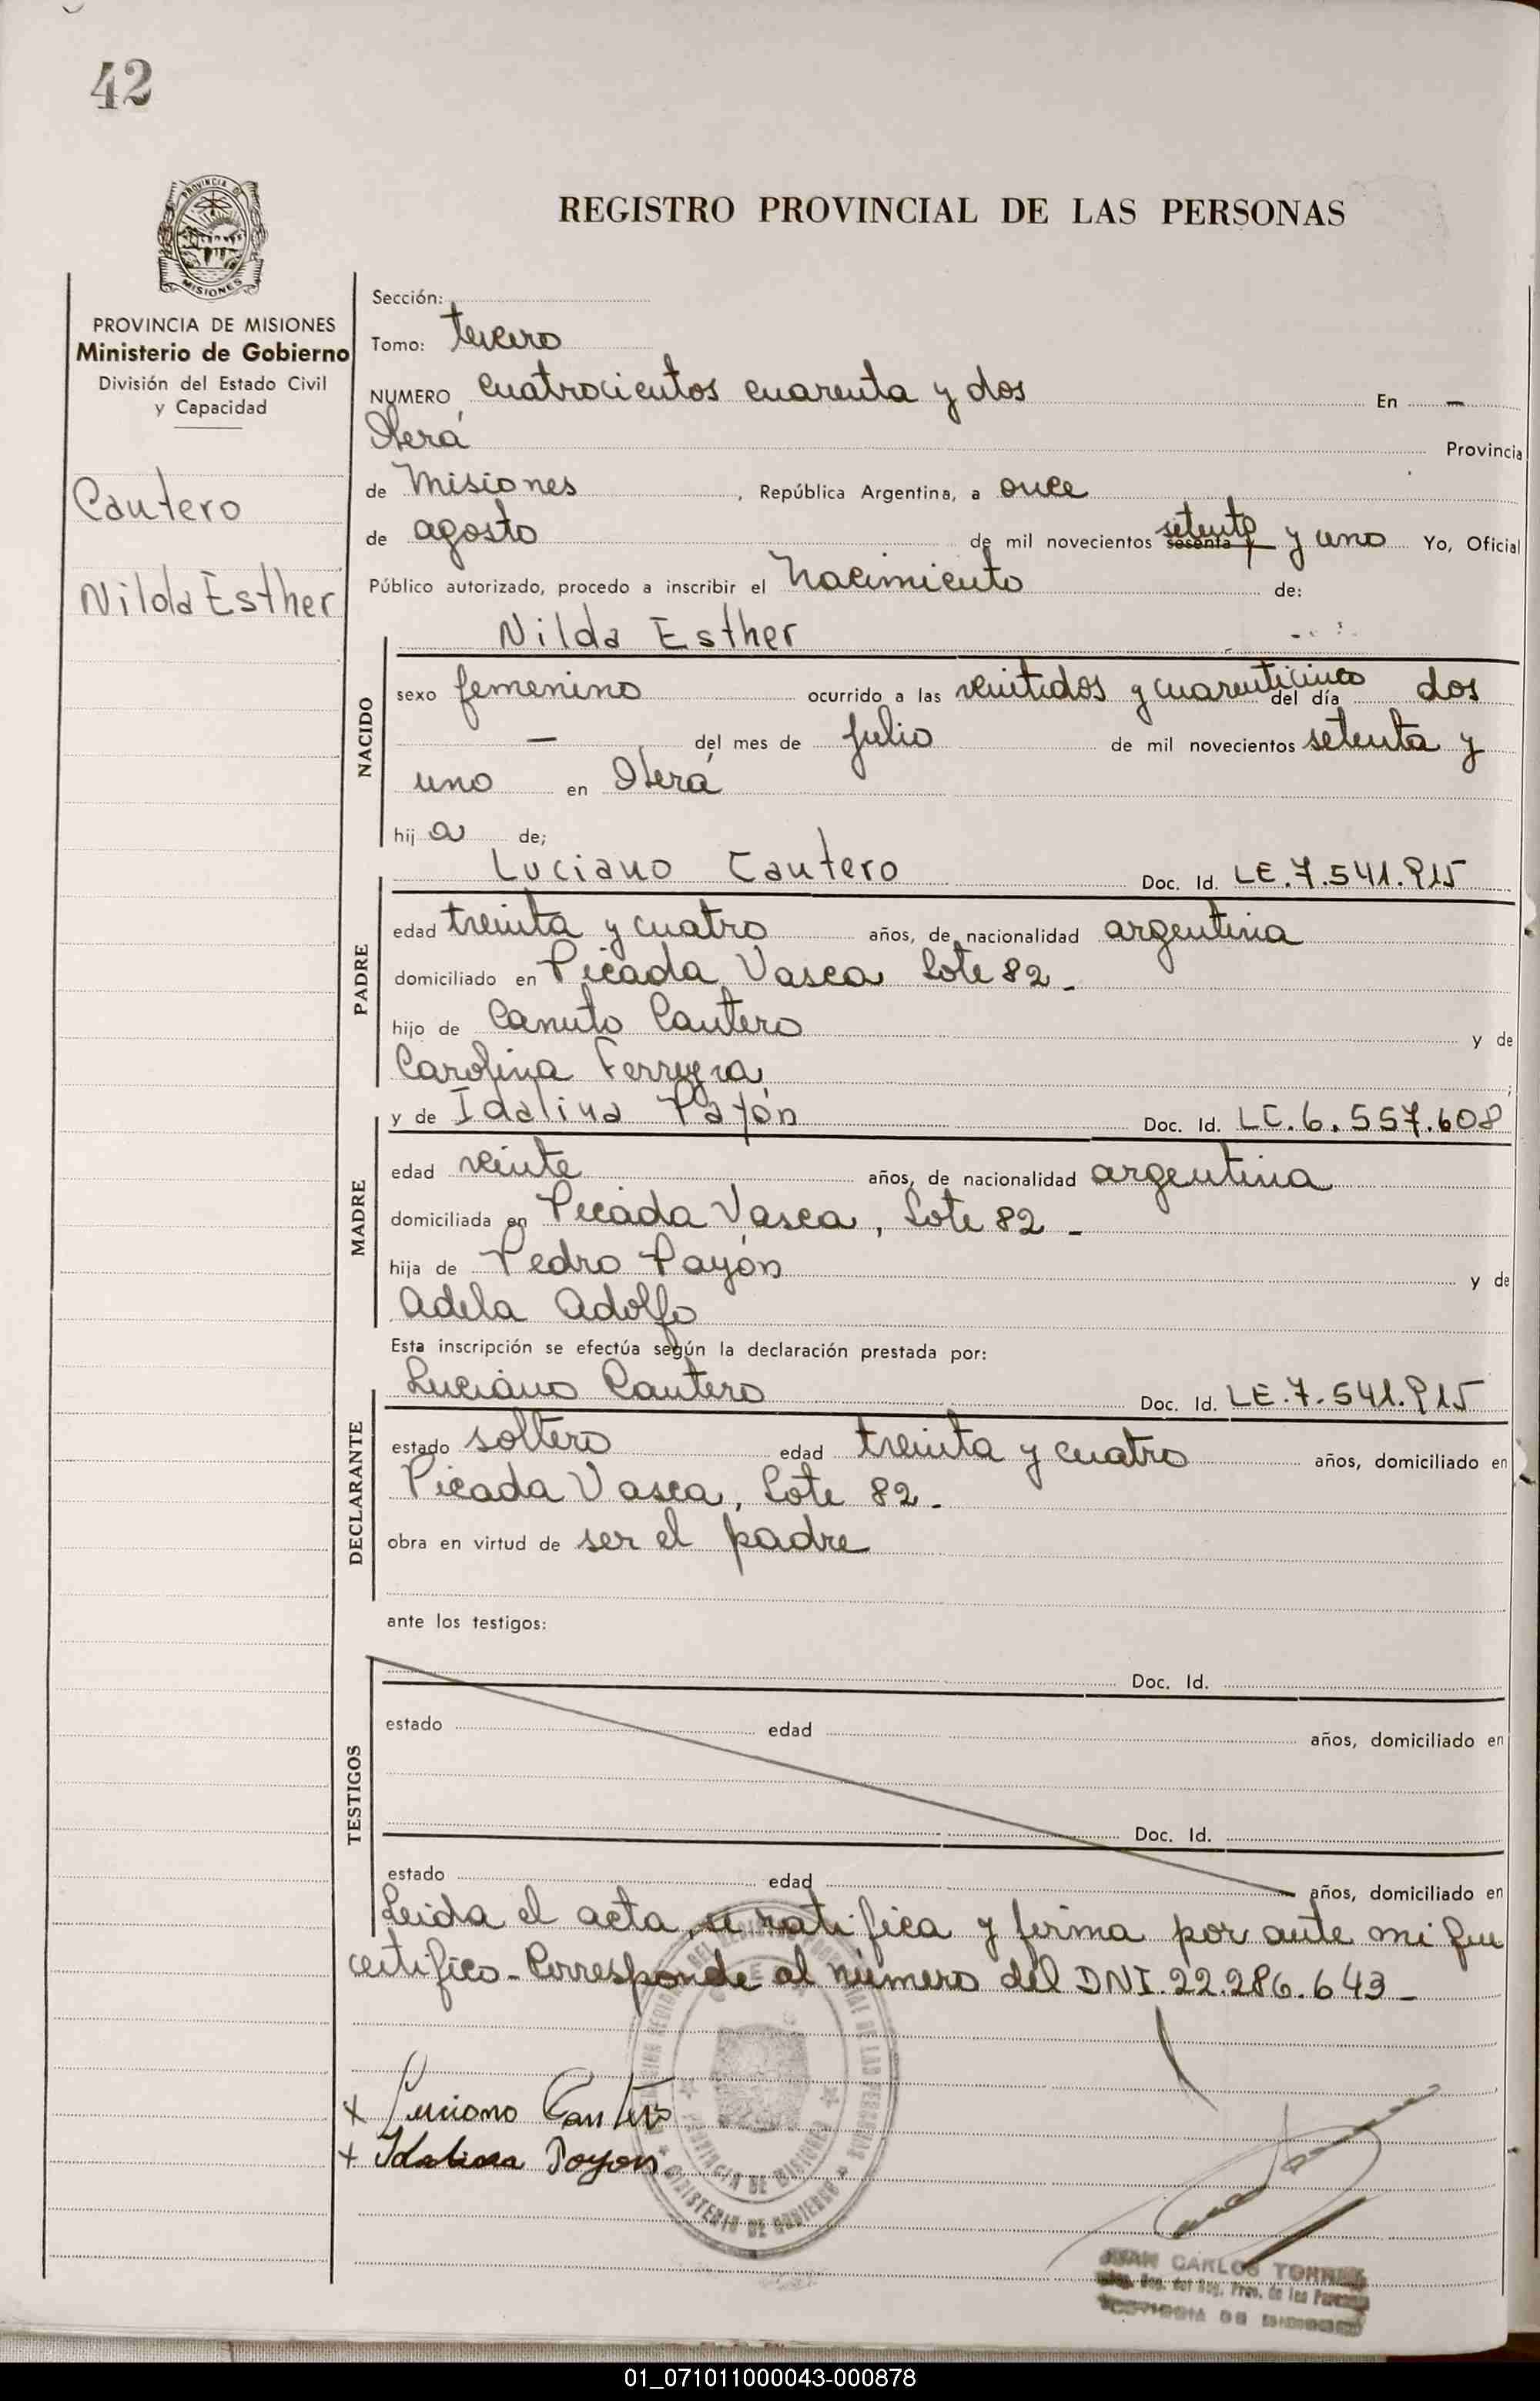 42
PROVINCIA DE
MISIONES
REGISTRO PROVINCIAL DE LAS PERSONAS
PROVINCIA DE MISIONES
Ministerio de Gobierno
División del Estado Civil
y Capacidad
Cantero
Nilda Esther
Sección:
Tomo: tercero
NUMERO cuatrocientos cuarenta y dos En -
Oberá Provincia
de Misiones, República Argentina, a once
de agosto de mil novecientos sesenta setenta y uno Yo, Oficial
Público autorizado, procedo a inscribir el Nacimiento de:
Nilda Esther
NACIDO
sexo femenino ocurrido a las veintidos y cuarenticinco del día dos
- del mes de julio de mil novecientos setenta y
uno en Oberá
hij a de;
Luciano Cantero Doc. Id. LE.7.541.915
PADRE
edad treinta y cuatro años, de nacionalidad argentina
domiciliado en Picada Vasca Lote 82 -
hijo de Canuto Cantero y de
Carolina Ferreyra;
y de Idalina Payón Doc. Id. LC.6.557.608
MADRE
edad veinte años, de nacionalidad argentina
domiciliada en Picada Vasca, Lote 82 -
hija de Pedro Payón y de
Adela Adolfo
Esta inscripción se efectúa según la declaración prestada por:
Luciano Cantero Doc. Id. LE.7.541.915
DECLARANTE
estado soltero edad treinta y cuatro años, domiciliado en
Picada Vasca, Lote 82 -
obra en virtud de ser el padre
ante los testigos:
TESTIGOS
Doc. Id.
estado edad años, domiciliado en
Doc. Id.
estado edad años, domiciliado en
Leida el acta, se ratifica y firma por ante mi que
certifico - Corresponde al número del DNI.22.286.643 -
x Luciano Cantero
x Idalina Poyon
PROVINCIA DE MISIONES
MINISTERIO DE GOBIERNO
JUAN CARLOS
Prov. de las
PROVINCIA DE MISIONES
01_071011000043-000878